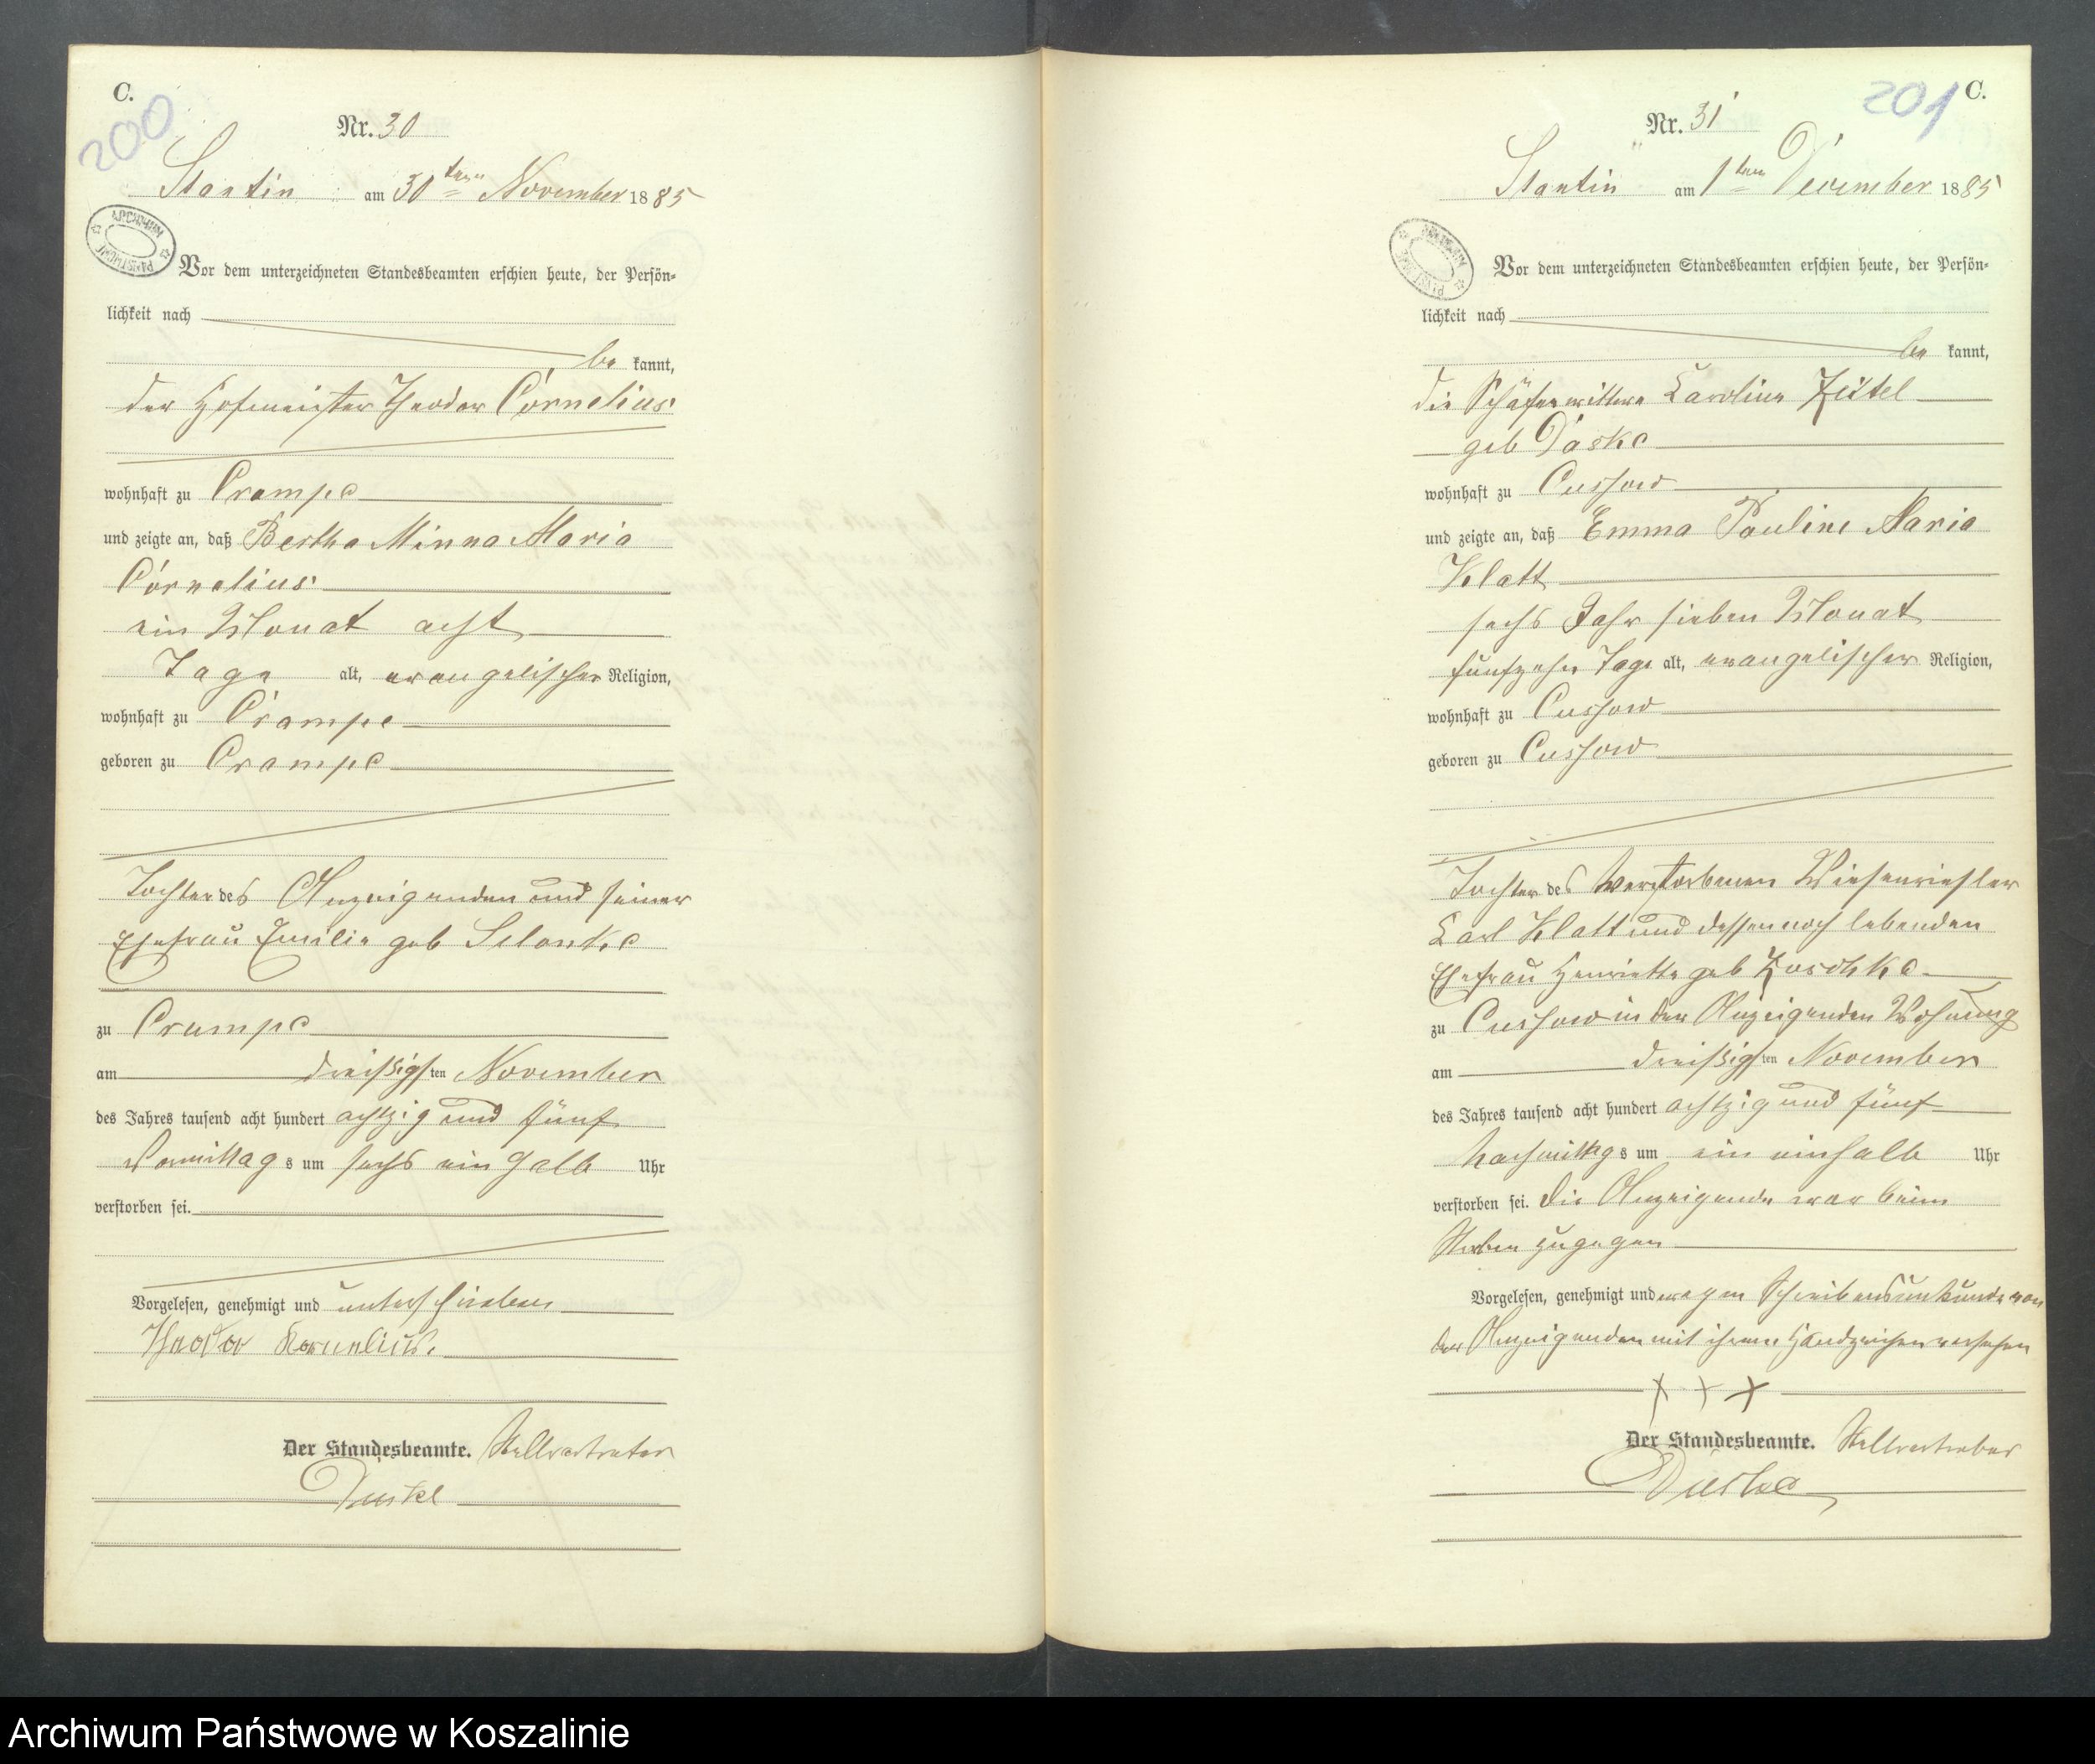 C.
200
Nr. 30
Stantin am 30ten November 1885
ARCHIWUM PAŃSTWOWE
Vor dem unterzeichneten Standesbeamten erschien heute, der Persön-
lichkeit nach
be kannt,
der Hofmeister Theodor Cornelius
wohnhaft zu Crampe
und zeigte an, daß Bertha Minna Maria
Cornelius
ein Monat acht
Tage alt, evangelischer Religion,
wohnhaft zu Crampe
geboren zu Crampe
Tochter des Anzeigenden und seiner
Ehefrau Emilie geb Selonke
zu Crampe
am dreißigsten November
des Jahres tausend acht hundert achtzig und fünf
Vormittags um sechs ein halb Uhr
verstorben sei.
Vorgelesen, genehmigt und unterschrieben
Theodor Kornelius.
Der Standesbeamte. Stellvertreter
C.
201
Nr. 31
Stantin am 1ten December 1885
ARCHIWUM PAŃSTWOWE
Vor dem unterzeichneten Standesbeamten erschien heute, der Persön-
lichkeit nach
be kannt,
die Schäferwittwe Karoline Zütel
geb Daske
wohnhaft zu Cussow
und zeigte an, daß Emma Pauline Maria
Klatt
sechs Jahr sieben Monat
fünfzehn Tage alt, evangelischer Religion,
wohnhaft zu Cussow
geboren zu Cussow
Tochter des verstorbenen
Karl Klatt und dessen noch lebenden
Ehefrau Henriette geb
zu Cussow in der Anzeigenden Wohnung
am dreißigsten November
des Jahres tausend acht hundert achtzig und fünf
Nachmittags um ein einhalb Uhr
verstorben sei. Die Anzeigende war beim
Sterben zugegen
Vorgelesen, genehmigt und wegen Schreibensunkunde von
der Anzeigenden mit ihrem Handzeichen versehen
+ + +
Der Standesbeamte. Stellvertreter
Archiwum Państwowe w Koszalinie